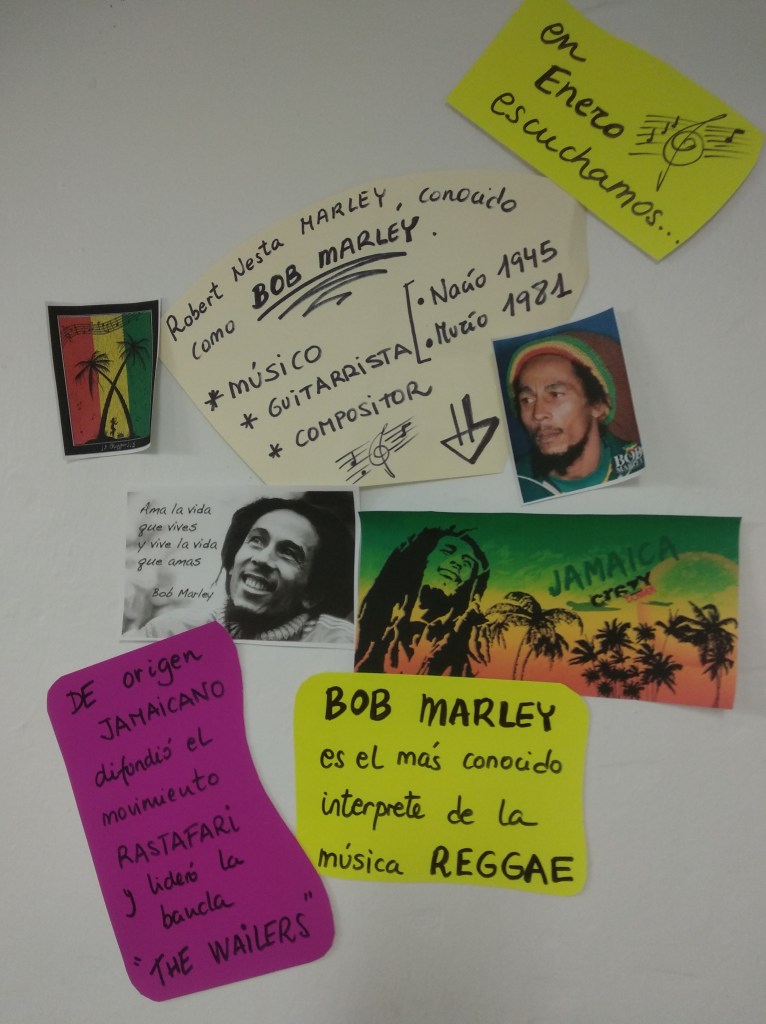 en
Enero
escuchamos...
Robert Nesta MARLEY, conocido
como BOB MARLEY.
• Nacío 1945
• Murío 1981
* MÚSICO
* GUITARRISTA
* COMPOSITOR
BOB
MARLEY
Ama la vida
que vives
y vive la vida
que amas
Bob Marley
JAMAICA
DE origen
JAMAICANO
difundió el
movimiento
RASTAFARI
y lideró la
banda
"THE WAILERS"
BOB MARLEY
es el más conocido
interprete de la
música REGGAE